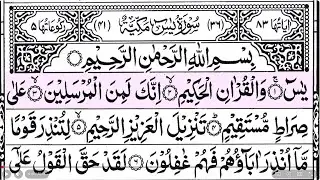 اٰیاتها ٨٣ (٣٦) سُوْرَةُ يٰسٓ مَكِّيَّةٌ (٤١) رکوعاتها ٥
بِسْمِ اللهِ الرَّحْمٰنِ الرَّحِيْمِ
يٰسٓ ۝١ وَالْقُرْاٰنِ الْحَكِيْمِ ۝٢ اِنَّكَ لَمِنَ الْمُرْسَلِيْنَ ۝٣ عَلٰى
صِرَاطٍ مُّسْتَقِيْمٍ ۝٤ تَنْزِيْلَ الْعَزِيْزِ الرَّحِيْمِ ۝٥ لِتُنْذِرَ قَوْمًا
مَّاۤ اُنْذِرَ اٰبَآؤُهُمْ فَهُمْ غٰفِلُوْنَ ۝٦ لَقَدْ حَقَّ الْقَوْلُ عَلٰٓى